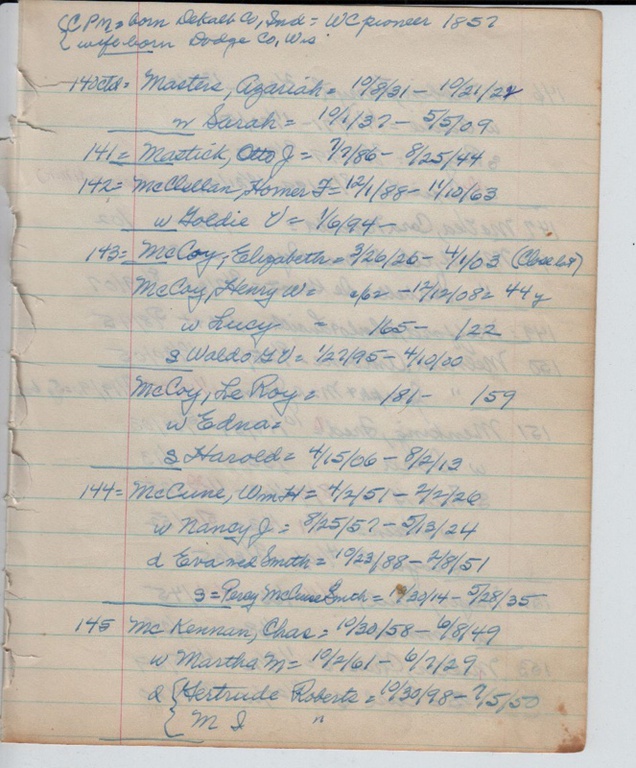 {C P M = born DeKalb Co, Ind = WC pioneer 1857
{wife born Dodge Co, Wis
140ctd = Masters, Azariah = 10/8/31 - 10/21/24
w Sarah = 10/1/37 - 5/5/09
141 = Mastick, Otto J = 7/7/86 - 8/25/44
142 = McClellan, Homer F = 12/1/88 - 11/10/63
w Goldie V = 1/6/94 -
143 = McCoy, Elizabeth = 3/26/26 - 4/1/03 (Close lot)
McCoy, Henry W = /62 - 12/12/08 = 44y
w Lucy = /65 - /22
s Waldo G V = 1/27/95 - 4/10/00
McCoy, Le Roy = /81 - /59
w Edna =
s Harold = 4/15/06 - 8/2/13
144 = McCune, Wm H = 4/2/51 - 2/2/26
w Nancy J = 8/25/57 - 5/13/24
d Eva Smith = 10/23/88 - 2/8/51
s = Percy McCune Smith = /30/14 - 5/28/35
145 McKennan, Chas = 10/30/58 - 6/8/49
w Martha M = 10/2/61 - 6/7/29
d {Gertrude Roberts = 10/30/98 - 7/5/50
{M I "